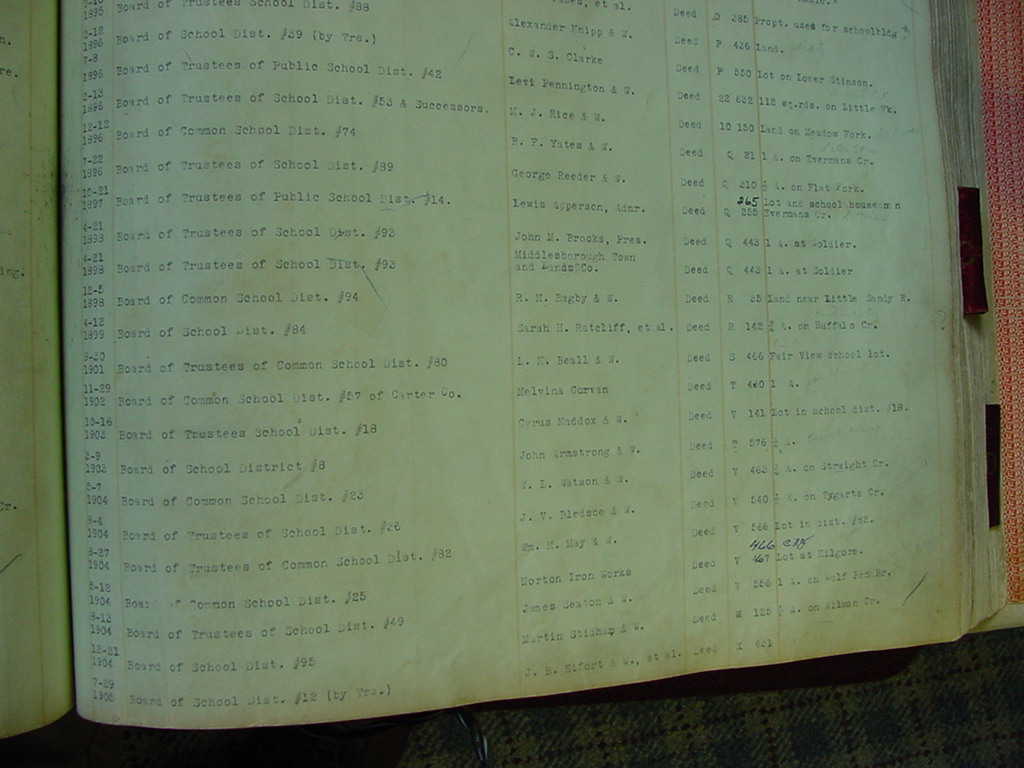 1895 Board of Trustees School Dist. #88 et al.
2-12 1896 Board of School Dist. #39 (by Trs.) Alexander Knipp & W. Deed O 385 Propt. used for schoolbldg
7-8 1896 Board of Trustees of Public School Dist. #42 C. W. S. Clarke Deed P 436 Land.
2-13 1896 Board of Trustees of School Dist. #53 & Successors. Levi Pennington & W. Deed P 550 Lot on Lower Stinson.
12-12 1896 Board of Common School Dist. #74 M. J. Rice & W. Deed 22 632 112 sq.rds. on Little Fk.
7-22 1896 Board of Trustees of School Dist. #89 B. F. Yates & W. Deed 10 150 Land on Meadow Fork.
10-21 1897 Board of Trustees of Public School Dist. #14. George Reeder & W. Deed Q 21 1 A. on Evermans Cr.
4-21 1898 Board of Trustees of School Dist. #93 Lewis Apperson, Admr. Deed Q 310 A. on Flat Fork.
265 Lot and school house on
Deed Q 255 Evermans Cr.
4-21 1898 Board of Trustees of School Dist. #93 John M. Brooks, Pres. Deed Q 443 1 A. at Soldier.
Middlesborough Town
and Lands Co. Deed Q 443 1 A. at Soldier
12-5 1898 Board of Common School Dist. #94 R. M. Bagby & W. Deed R 35 Land near Little Sandy R.
4-12 1899 Board of School Dist. #84 Sarah H. Ratcliff, et al. Deed R 142 A. on Buffalo Cr.
9-30 1901 Board of Trustees of Common School Dist. #80 L. N. Beall & W. Deed S 466 Fair View school lot.
11-29 1902 Board of Common School Dist. #57 of Carter Co. Melvina Corvan Deed T 460 1 A.
10-16 1903 Board of Trustees School Dist. #18 Cyrus Maddox & W. Deed V 141 Lot in school dist. #18.
2-9 1903 Board of School District #8 John Armstrong & W. Deed T 576 A.
5-7 1904 Board of Common School Dist. #23 W. L. Watson & W. Deed V 463 A. on Straight Cr.
8-4 1904 Board of Trustees of School Dist. #36 J. V. Pledsoe & W. Deed V 540 A. on Tygarts Cr.
8-27 1904 Board of Trustees of Common School Dist. #82 Wm. M. May & W. Deed V 566 Lot in Dist. #82.
466
5-12 1904 Board of Common School Dist. #25 Norton Iron Works Deed V 467 Lot at Kilgore.
8-13 1904 Board of Trustees of School Dist. #49 James Seaton & W. Deed V 556 1 A. on Wolf Pen Br.
12-21 1904 Board of School Dist. #95 Martin Stidham & W. Deed W 125 A. on Wilson Cr.
7-29 1905 Board of School Dist. #12 (by Trs.) J. B. Kifort & W., et al. Deed X 431